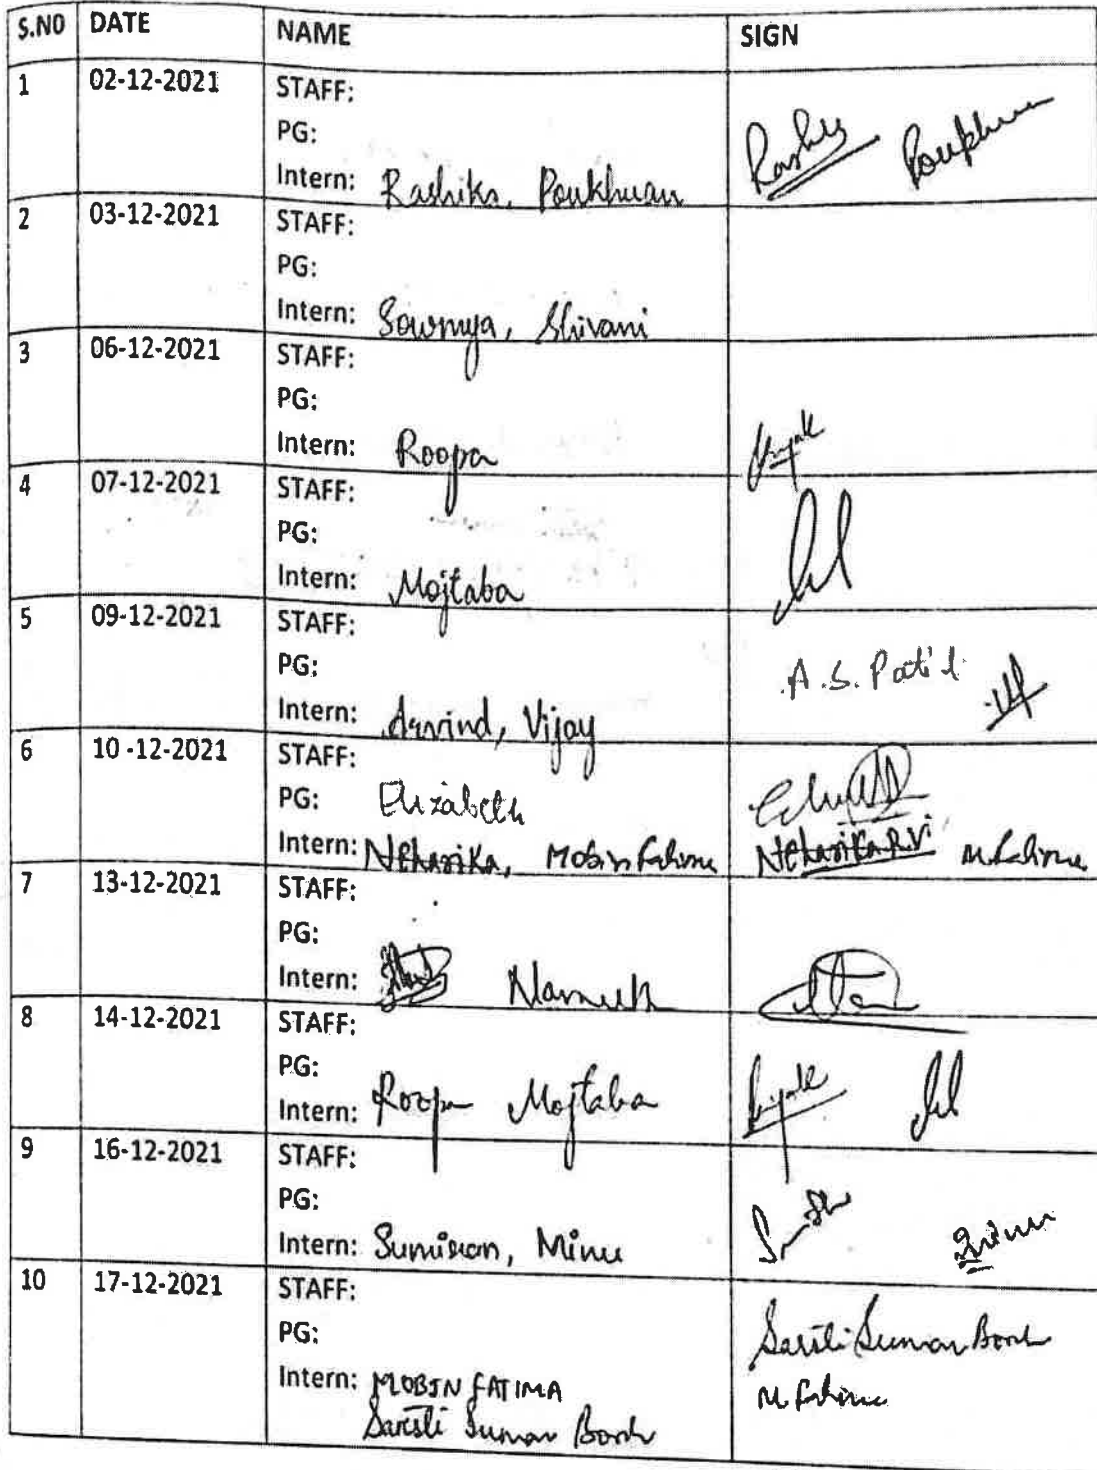 S.NO DATE NAME SIGN
1 02-12-2021 STAFF:
PG:
Intern: Rashika, Poukhuan
2 03-12-2021 STAFF:
PG:
Intern: Sowmya, Shivani
3 06-12-2021 STAFF:
PG:
Intern: Roopa
4 07-12-2021 STAFF:
PG:
Intern: Mojtaba
5 09-12-2021 STAFF:
PG: A.S. Patil
Intern: Aravind, Vijay
6 10-12-2021 STAFF:
PG: Elizabeth
Intern: Neharika, Mobin Fatima Neharika.R.V M.Fatima
7 13-12-2021 STAFF:
PG:
Intern:
8 14-12-2021 STAFF:
PG:
Intern: Roopa Mojtaba
9 16-12-2021 STAFF:
PG:
Intern: Sumiran, Minu
10 17-12-2021 STAFF:
PG:
Intern: MOBIN FATIMA M Fatima